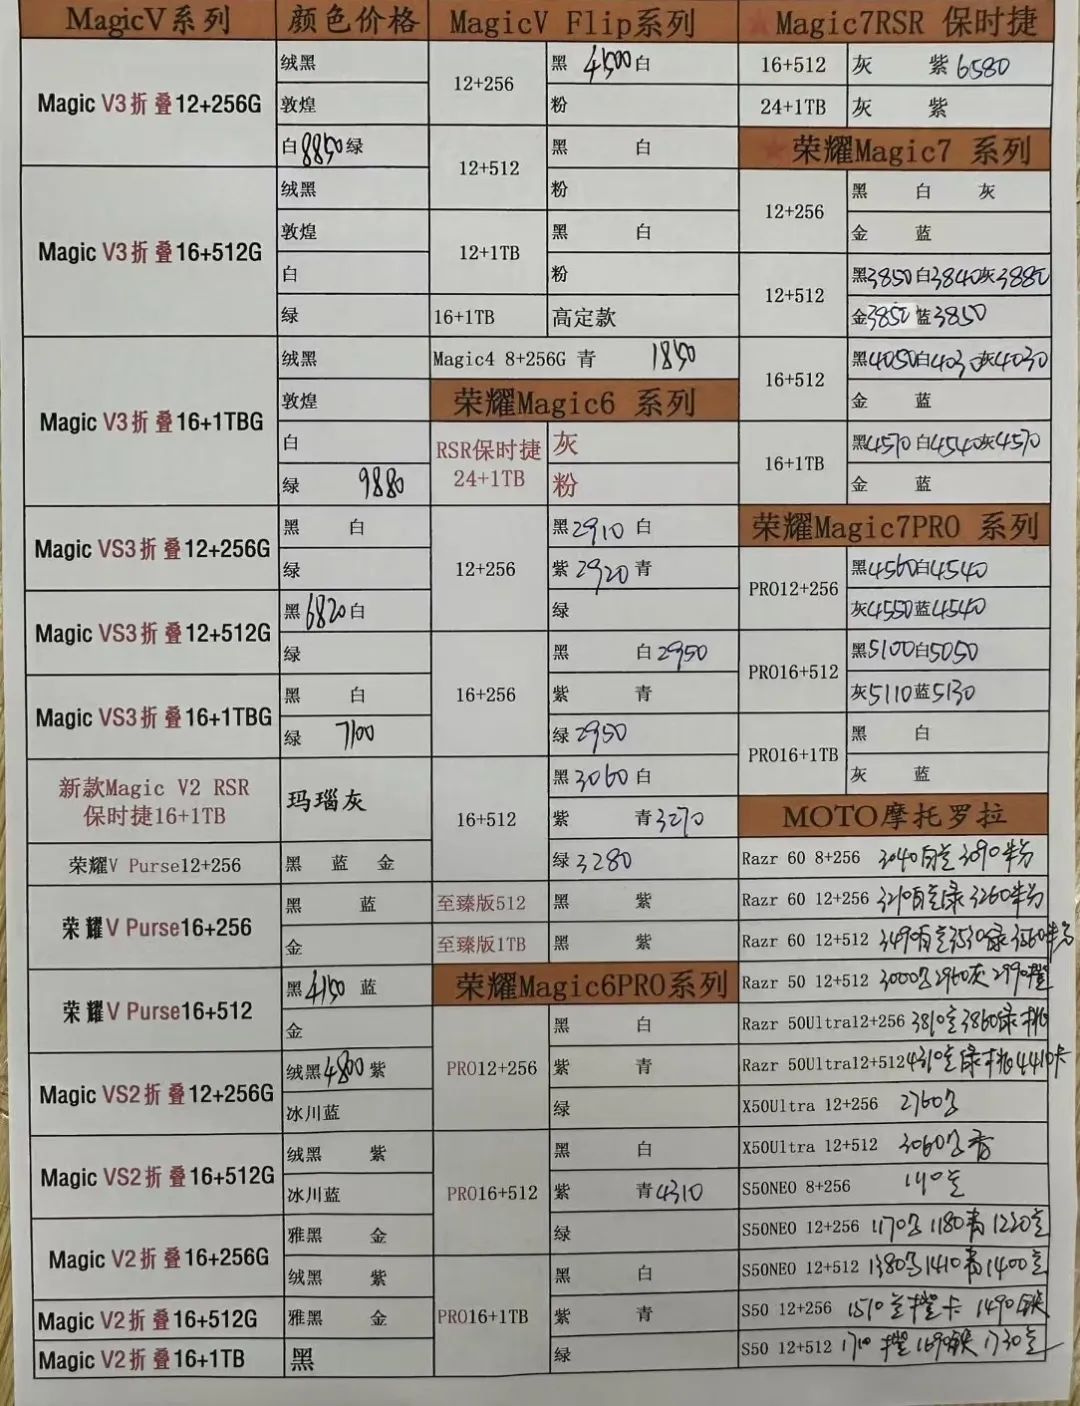 MagicV系列 颜色价格
Magic V3折叠12+256G
绒黑
敦煌
白8850绿
Magic V3折叠16+512G
绒黑
敦煌
白
绿
Magic V3折叠16+1TBG
绒黑
敦煌
白
绿 9880
Magic VS3折叠12+256G
黑 白
绿
Magic VS3折叠12+512G
黑6820白
绿
Magic VS3折叠16+1TBG
黑 白
绿 7100
新款Magic V2 RSR
保时捷16+1TB
玛瑙灰
荣耀V Purse12+256 黑 蓝 金
荣耀V Purse16+256
黑 蓝
金
荣耀V Purse16+512
黑4150蓝
金
Magic VS2折叠12+256G
绒黑4800紫
冰川蓝
Magic VS2折叠16+512G
绒黑 紫
冰川蓝
Magic V2折叠16+256G
雅黑 金
绒黑 紫
Magic V2折叠16+512G 雅黑 金
Magic V2折叠16+1TB 黑
MagicV Flip系列
12+256
黑 4500白
粉
12+512
黑 白
粉
12+1TB
黑 白
粉
16+1TB 高定款
Magic4 8+256G 青 1850
荣耀Magic6 系列
RSR保时捷
24+1TB
灰
粉
12+256
黑2910 白
紫2920青
绿
16+256
黑 白2950
紫 青
绿2950
16+512
黑3060白
紫 青3270
绿3280
至臻版512 黑 紫
至臻版1TB 黑 紫
荣耀Magic6PRO系列
PRO12+256
黑 白
紫 青
绿
PRO16+512
黑 白
紫 青4310
绿
PRO16+1TB
黑 白
紫 青
绿
★Magic7RSR 保时捷
16+512 灰 紫6580
24+1TB 灰 紫
★荣耀Magic7 系列
12+256
黑 白 灰
金 蓝
12+512
黑3850白3840灰3880
金3850蓝3850
16+512
黑4050白4030灰4030
金 蓝
16+1TB
黑4570白4540灰4570
金 蓝
荣耀Magic7PRO 系列
PRO12+256
黑4560白4540
灰4550蓝4540
PRO16+512
黑5100白5050
灰5110蓝5130
PRO16+1TB
黑 白
灰 蓝
MOTO摩托罗拉
Razr 60 8+256 3040 3090
Razr 60 12+256 3210 绿 3260
Razr 60 12+512 3490 3530绿 3560
Razr 50 12+512 3000 2960灰 2990橙
Razr 50Ultra12+256 3810 3860绿 桃
Razr 50Ultra12+512 4310 绿 桃4410卡
X50Ultra 12+256 2760
X50Ultra 12+512 3060 青
S50NEO 8+256
S50NEO 12+256 1170 1180青 1220
S50NEO 12+512 1380 1410青1400
S50 12+256 1510 橙卡 1490
S50 12+512 1710 橙 1690 1730